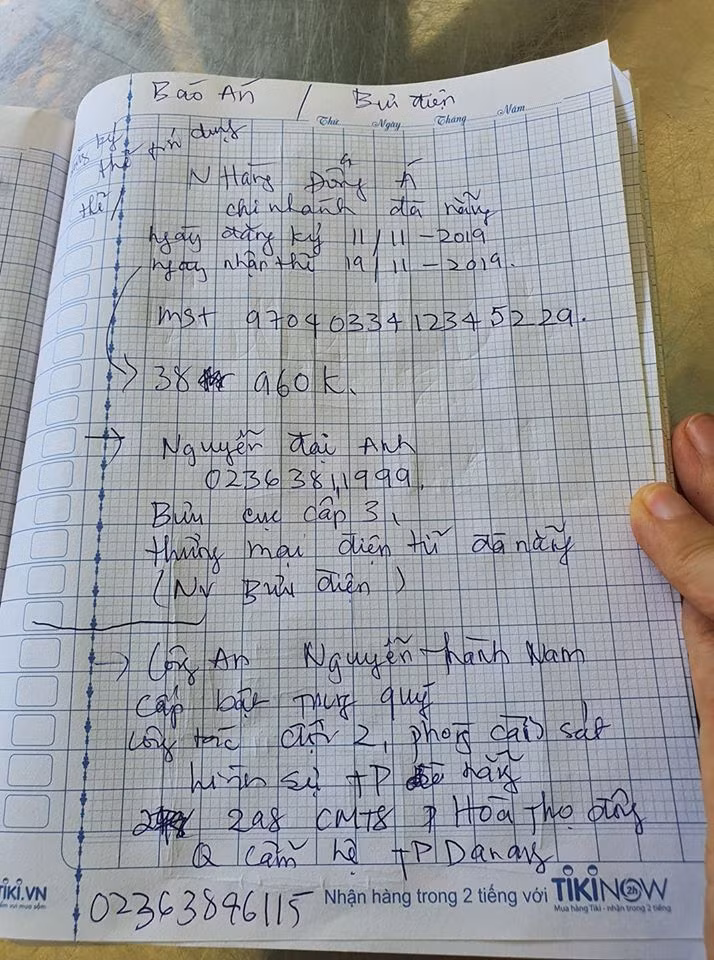 Báo Án / Bưu điện
Thứ Ngày Tháng Năm
đăng ký thẻ tín dụng
N Hàng Đông Á
thì / chi nhánh đà nẵng
ngày đăng ký 11/11-2019
ngày nhận thẻ 19/11-2019.
mst 9704 0334 1234 5229.
38 960k.
→ Nguyễn đại Anh
0236 381,1999.
Bưu cục cấp 3,
thương mại điện tử đà nẵng
(NV Bưu điện)
→ Công An Nguyễn thành Nam
cấp bậc trung quý
công tác đội 2, phòng cảnh sát
hình sự TP nẵng
298 CMT8 P Hoà thọ đông
Q cẩm lệ TP Danang
TIKI.VN
Nhận hàng trong 2 tiếng với TIKINOW 2h
Mua hàng Tiki - nhận trong 2 tiếng
02363846115